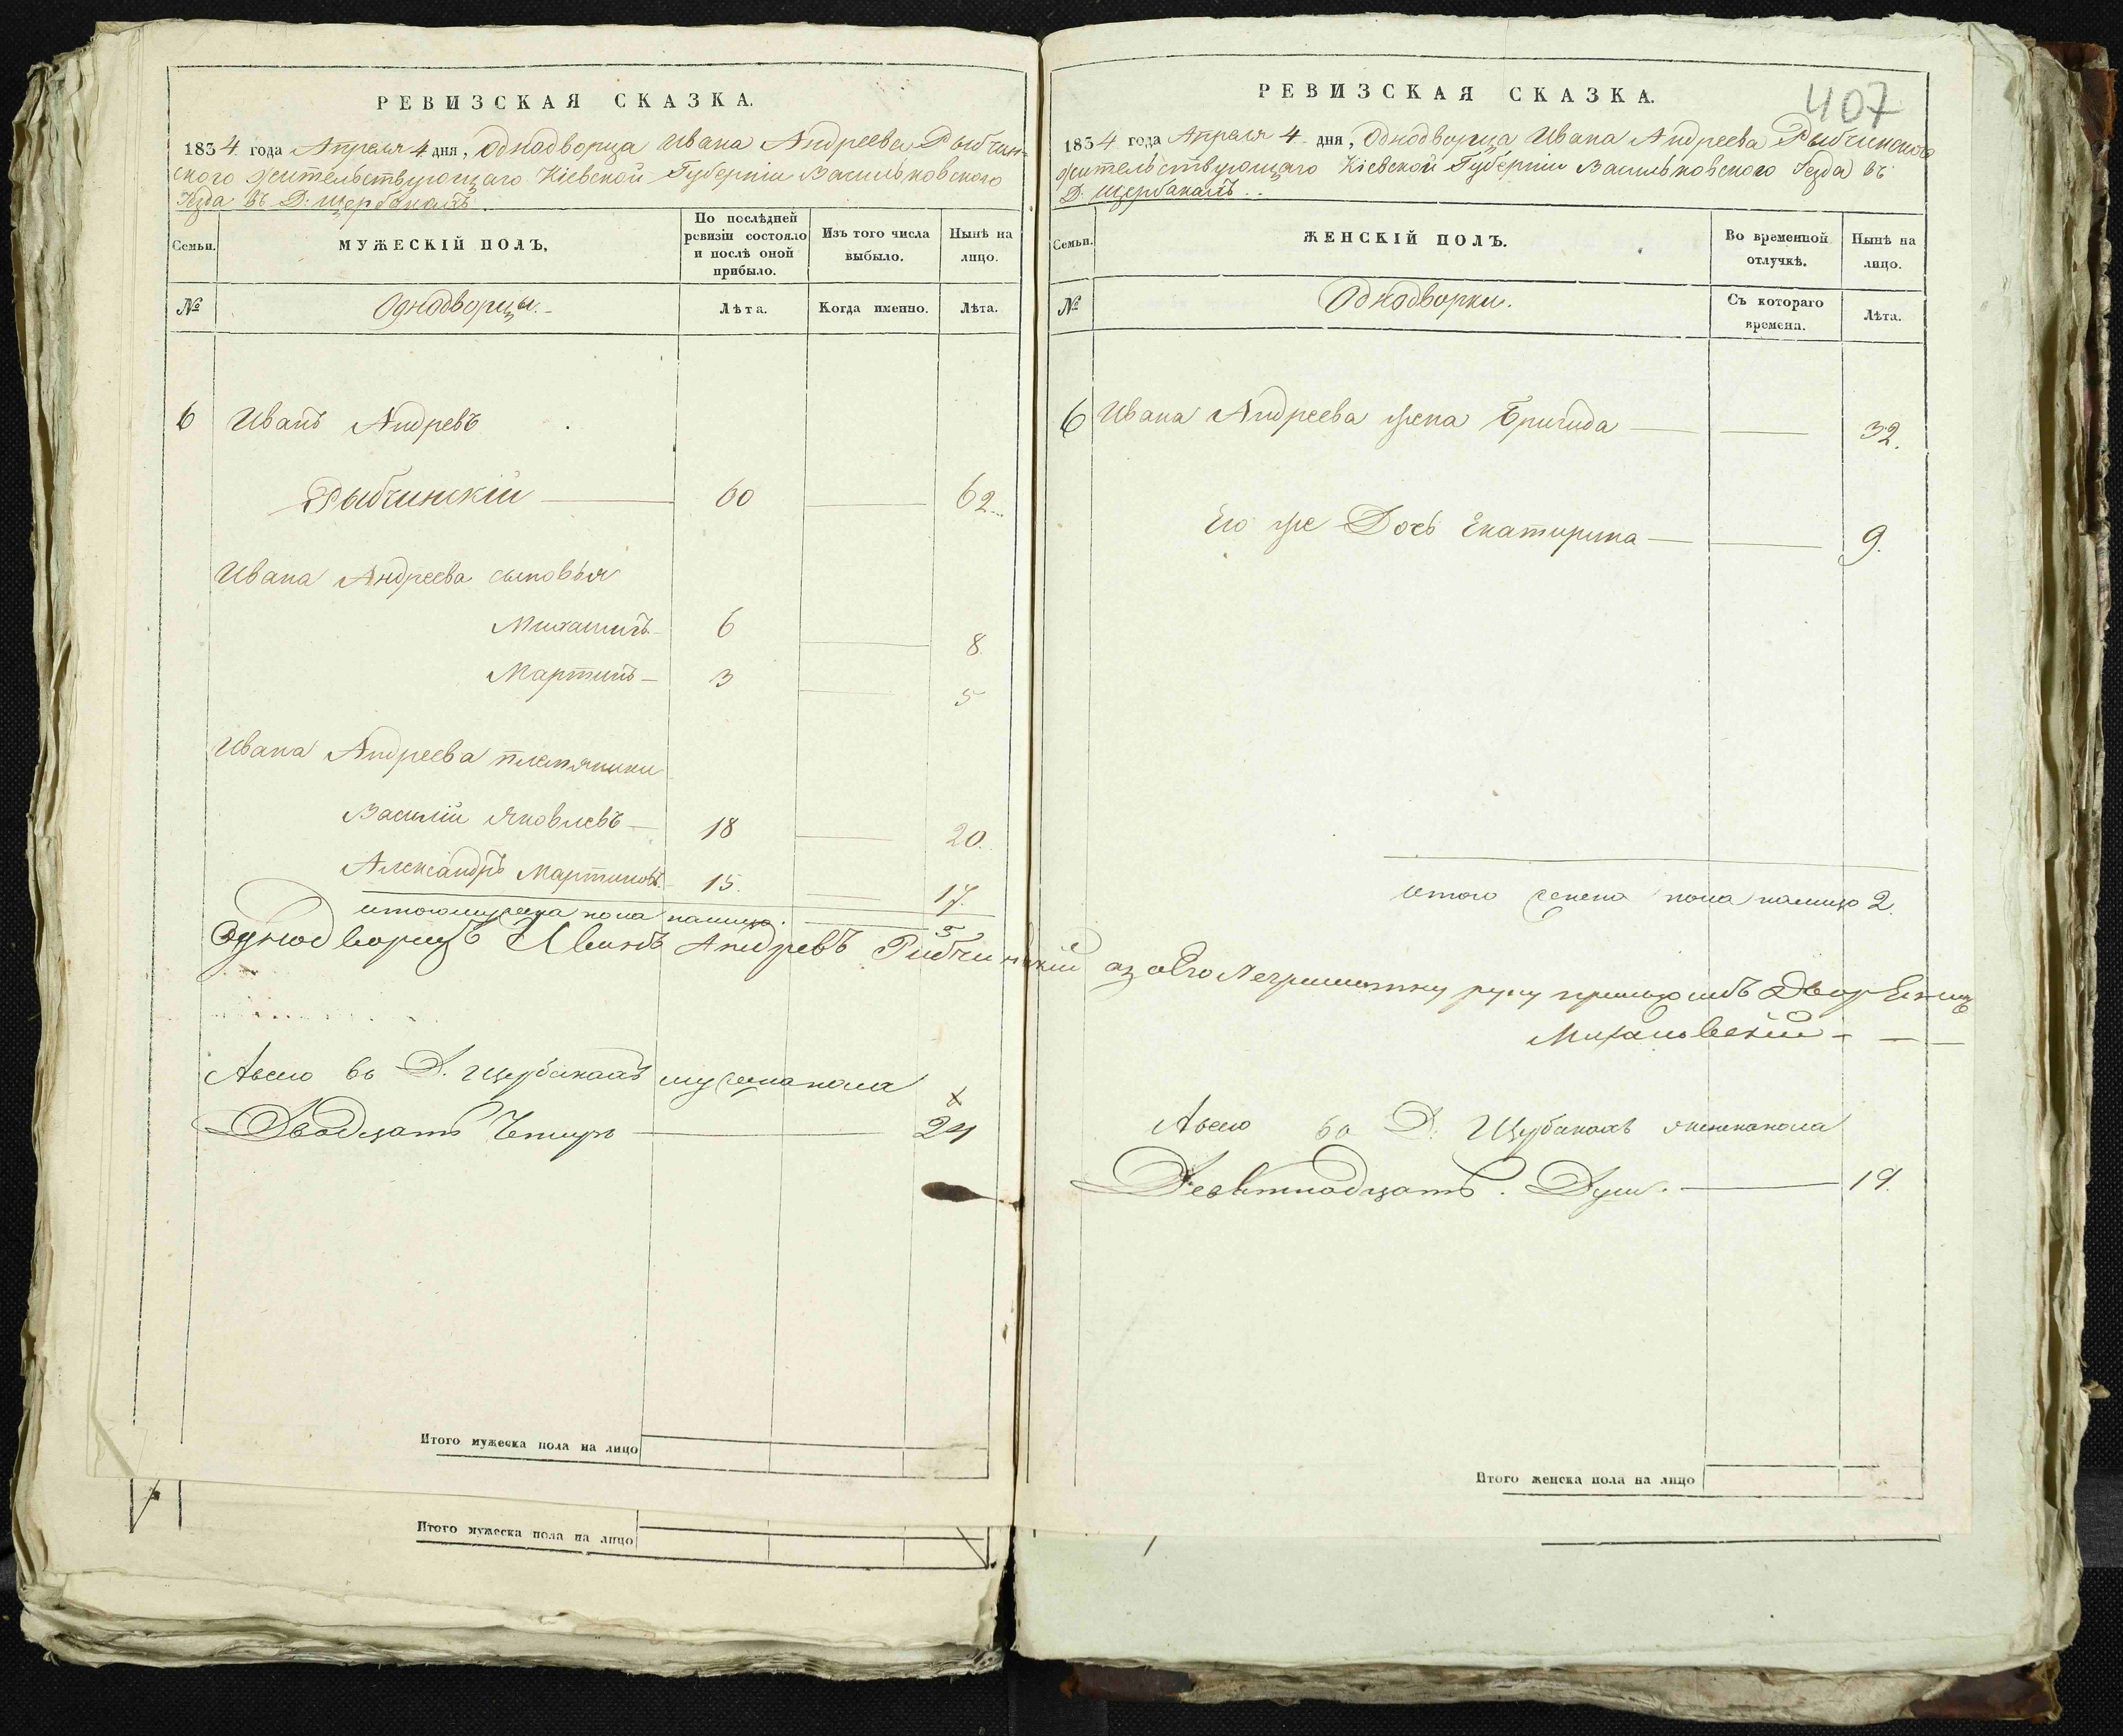 РЕВИЗСКАЯ СКАЗКА.
1834 года Апреля 4 дня, Однодворца Ивана Андреева Рыбчин-
ского жительствующаго Кіевской Губерніи Васильковскаго
Уезда въ Д. Щербакахъ.
Семьи.
МУЖЕСКІЙ ПОЛЪ,
По послѣдней ревизіи состояло и послѣ оной прибыло.
Изъ того числа выбыло.
Нынѣ на лицо.
№
Однодворцы.
Лѣта.
Когда именно.
Лѣта.
6 Иванъ Андревъ
Рыбчинскій 60 62
Ивана Андреева сыновья
Михаилъ 6 8.
Мартинъ 3 5
Ивана Андреева племяники
Василій Яковлевъ 18 20.
Александръ Мартиновъ 15. 17.
итого мужеска пола налицо. 5
Однодворецъ Иванъ Андревъ Рибчинский
Авсего во Д. Щербакахъ мужеска пола
Двадцать Четыре 24
Итого мужеска пола на лицо
Итого мужеска пола на лицо
407
РЕВИЗСКАЯ СКАЗКА.
1834 года Апреля 4 дня, Однодворца Ивана Андреева Рыбчинского
жительствующаго Кіевской Губерніи Васильковского Уезда въ
Д. Щербакахъ.
Семьи.
ЖЕНСКІЙ ПОЛЪ.
Во временной отлучкѣ.
Нынѣ на лицо.
№
Однодворки.
Съ котораго времена.
Лѣта.
6 Ивана Андреева жена Бригида 32.
Его же Дочь Екатирина 9.
итого женска пола налицо 2.
азаего Неграмотну руку приложилъ Дворенинъ
Михальвский
Авсего во Д. Щербакахъ женска пола
Девятнадцать. Душ. 19.
Итого женска пола на лицо